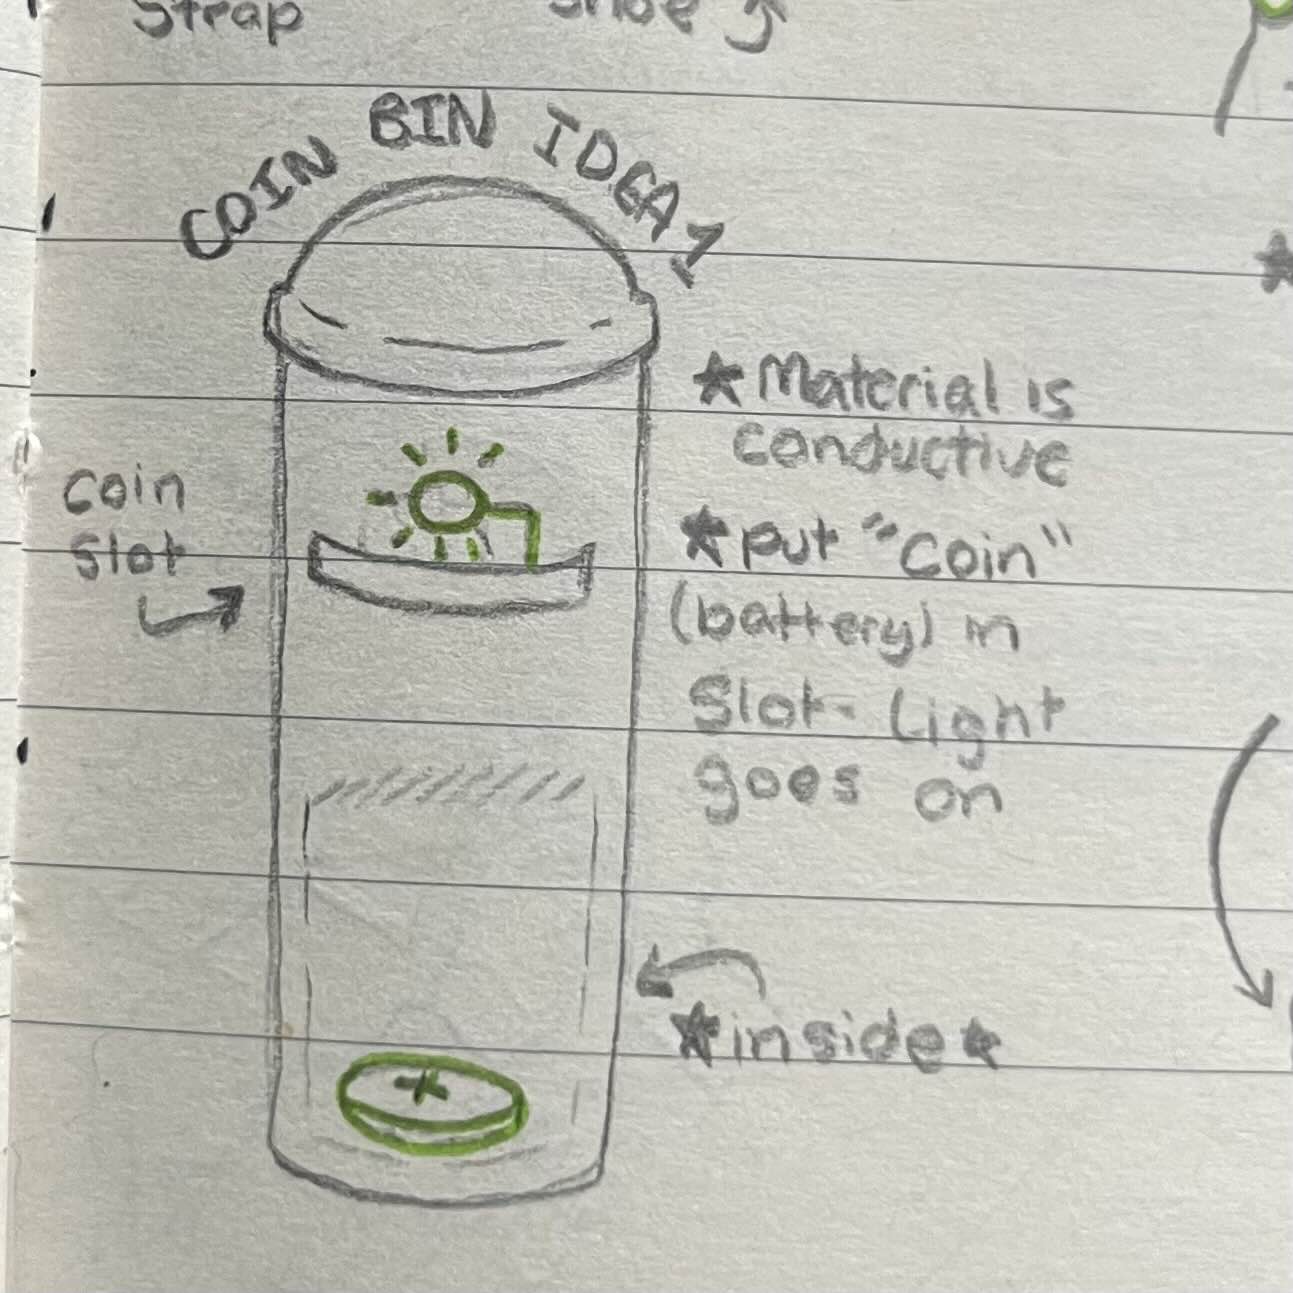 Strap
Shoe
COIN BIN IDEA 1
Coin
Slot
★ Material is
conductive
★ put "Coin"
(battery) in
Slot - Light
goes on
★ inside ★
+